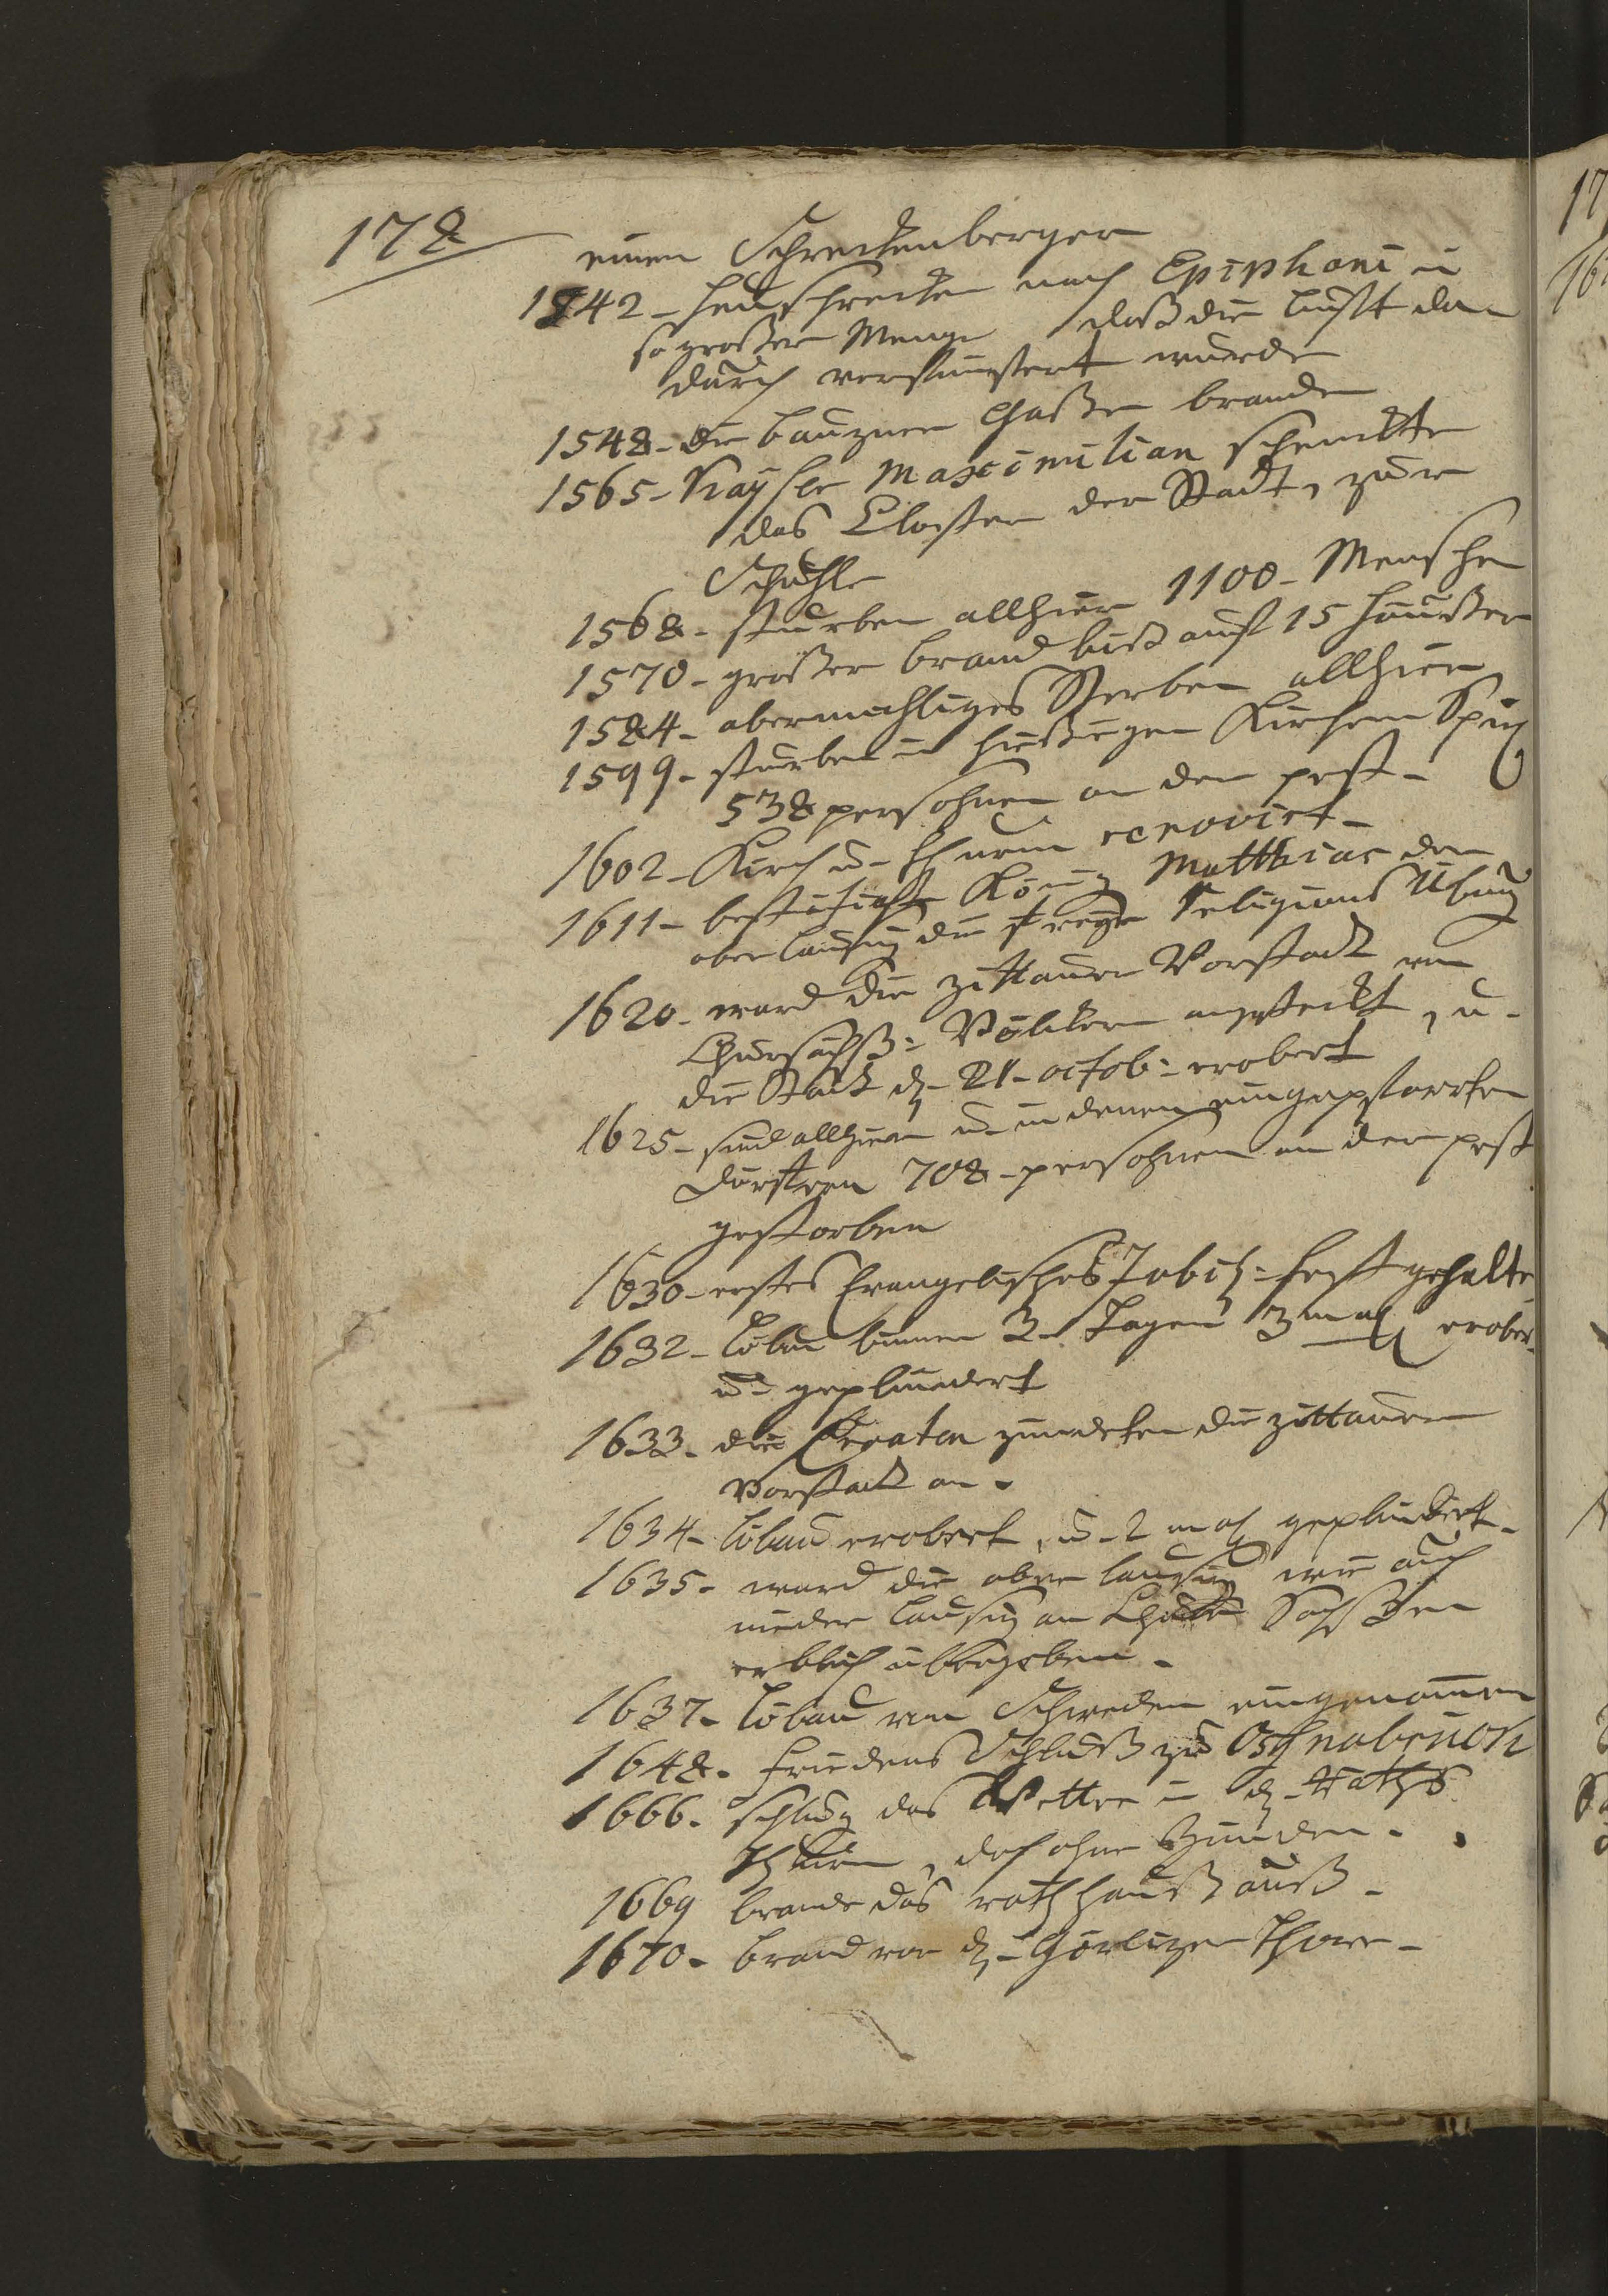 178
einen Schreckenberger
1542 - heuschrecken nach Epiphani in
so großer Menge daß die lufft da
durch verfinstert wurde
1548 - die bauzner Gaßen brande
1565 - Kaÿser Maximilian schenckte
das Closter der Stadt, zur
Schuhle
1568 - sturben allhier 1100 - Menschen
1570 - großer brand biß auf 15 häußer
1584 - abermahliges Sterben allhier
1599 - sturben in hießigen Kirchen Spiel
538 persohnen an der pest -
1602 - Kirch u - thurm renovirt -
1611 - König Matthias der
ober lausiz die freye Religions Übung
1620 - ward die zittauer Vorstadt von
Chursächß: Völckern angesteckt, u -
die Stadt d - 21 - octob: erobert
1625 - sind allhier u - in denen eingepfarrten
dörffern 708 - persohnen an der pest
gestorben
1630 - erstes Evangelisches Jubil: fest gehalte
1632 - löbau binnen 3 - Tagen 3 mahl erober
u - gepluendert
1633 - die Croaten zündeten die zittauer
Vorstadt an -
1634 - löbau erobert, u - 2 mahl geplündert -
1635 - ward die ober lausiz wie auch
nieder lausiz an Chur Sachßen
erblich übergeben -
1637 - löbau von Schweden eingenom̄en
1648 - friedens Schluß zu Oßnabrück
1666 - schlug das Wetter in d - raths
thurm, doch ohne zünden -
1669 brande das rathhauß auß -
1670 - brand vor d - Görlizer Thore -
17